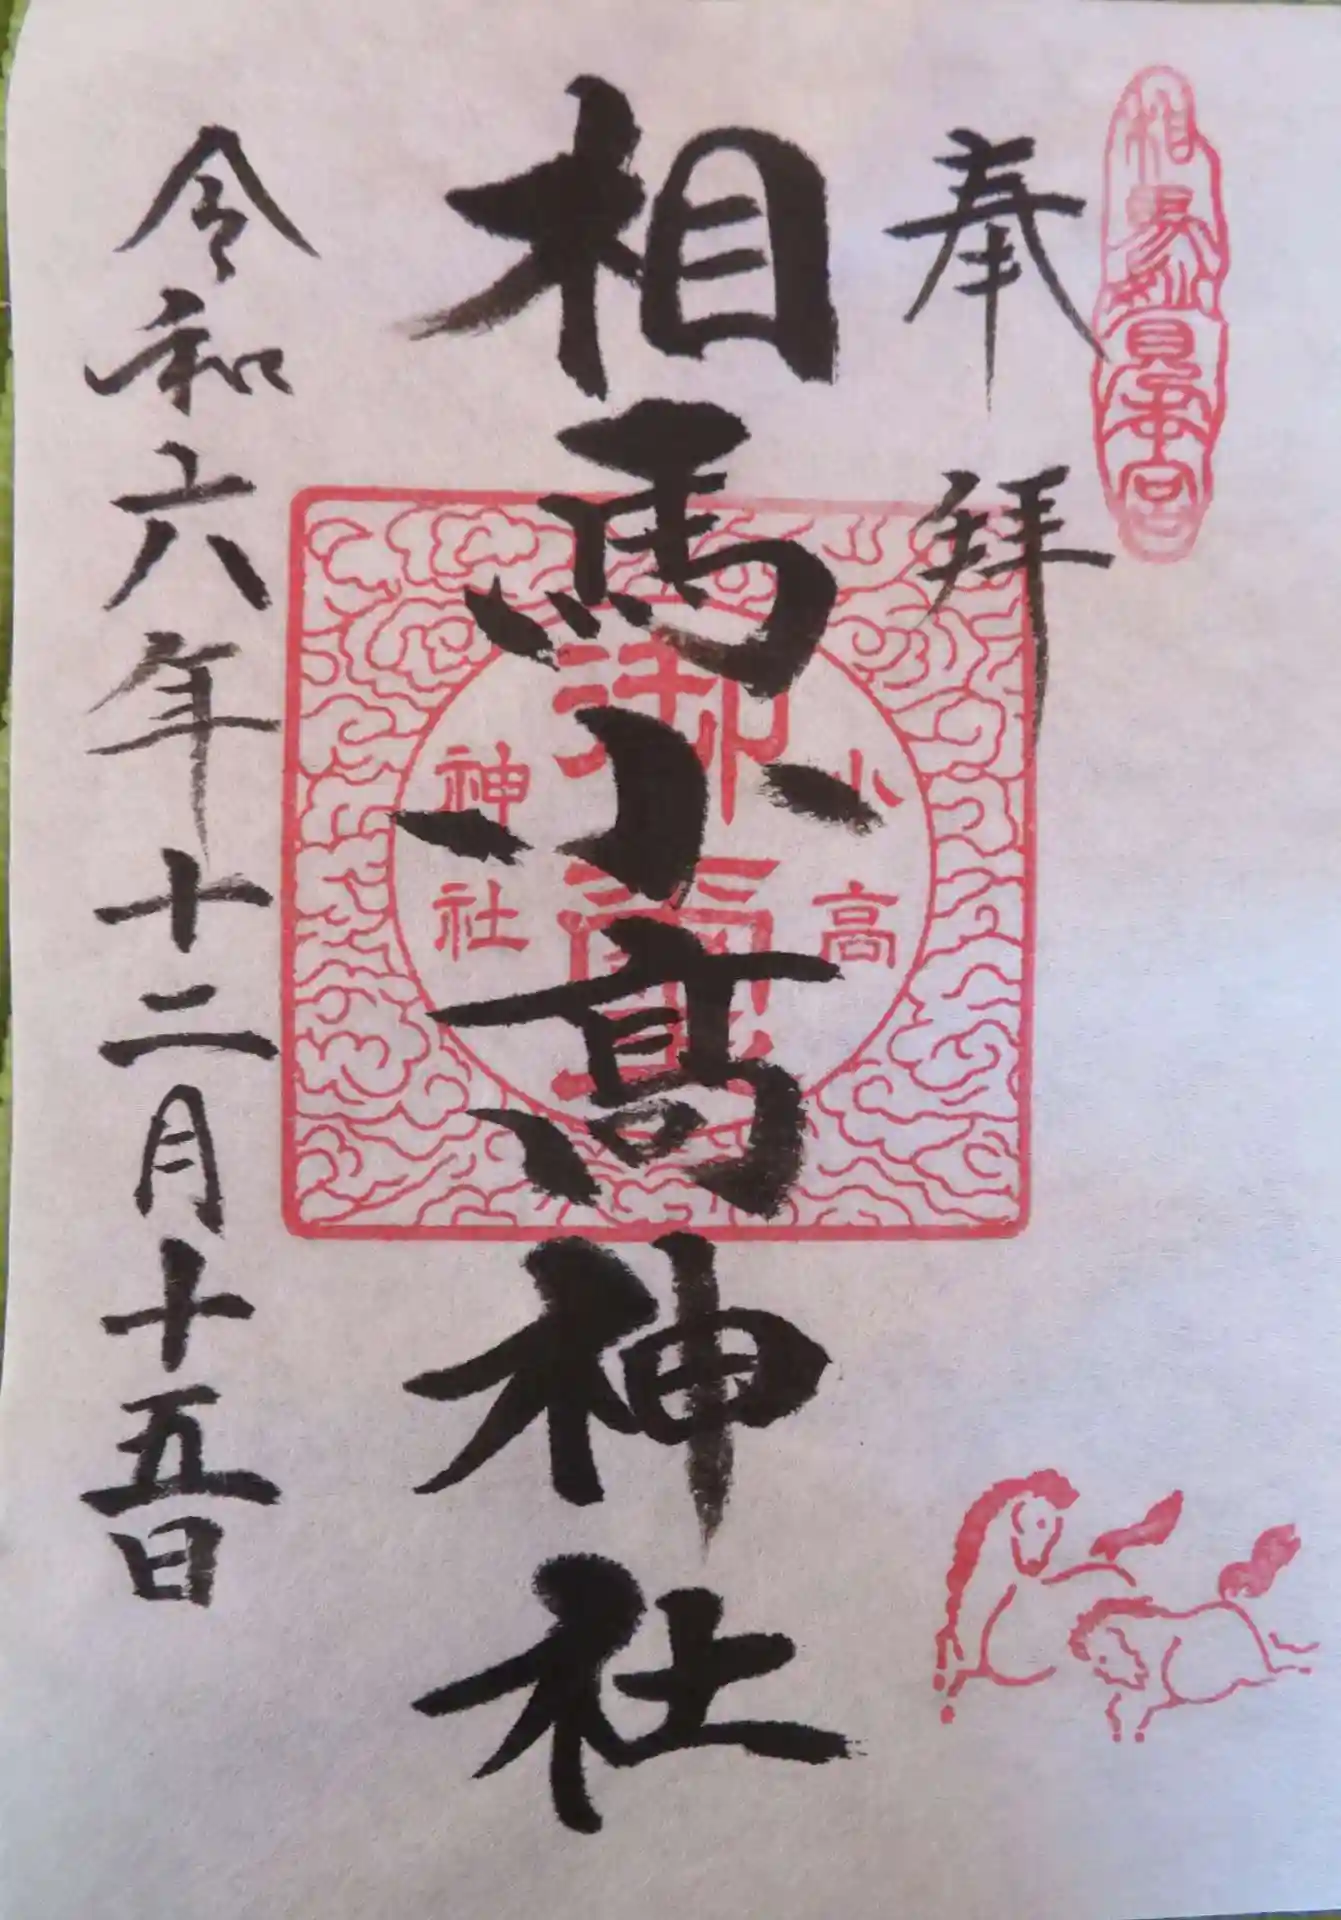 相馬妙見本宮
奉拝
相馬小高神社
小高
御霊
神社
令和六年十二月十五日